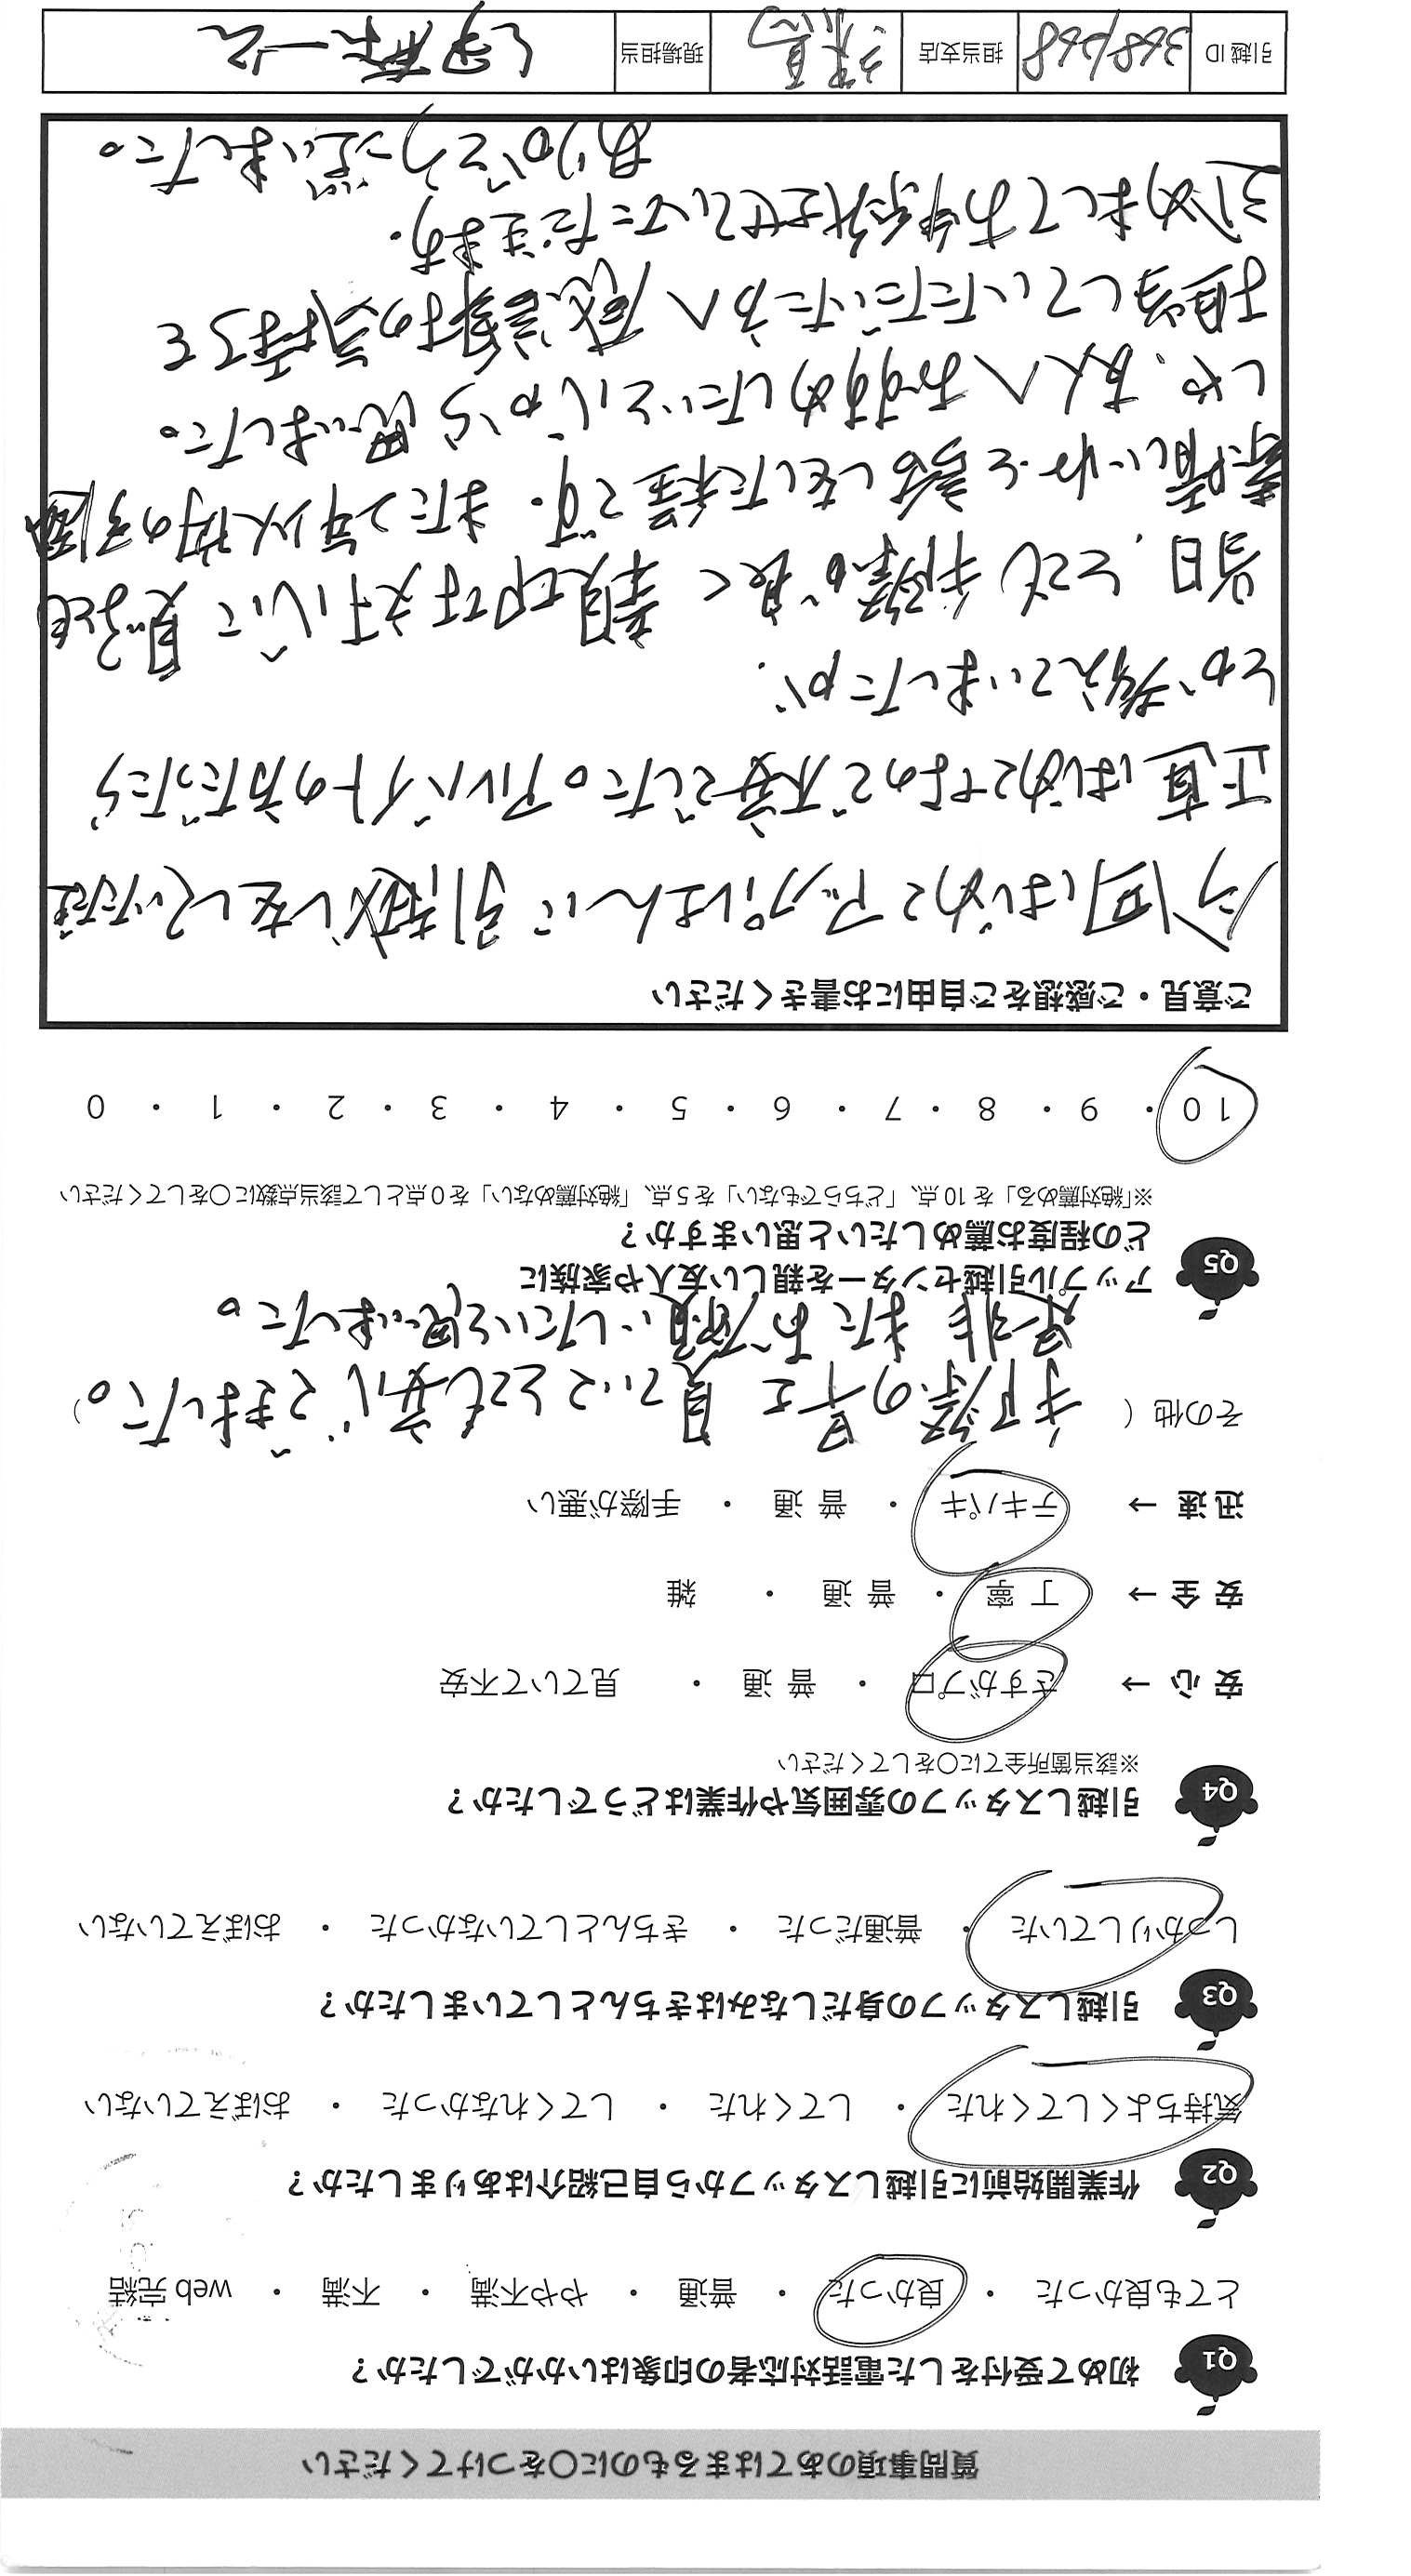 質問事項のあてはまるものに○をつけてください
Q1 初めて受付をした電話対応者の印象はいかがでしたか？
とても良かった ・ 良かった ・ 普通 ・ やや不満 ・ 不満 ・ web 完結
Q2 作業開始前に引越しスタッフから自己紹介はありましたか？
気持ちよくしてくれた ・ してくれた ・ してくれなかった ・ おぼえていない
Q3 引越しスタッフの身だしなみはきちんとしていましたか？
しっかりしていた ・ 普通だった ・ きちんとしていなかった ・ おぼえていない
Q4 引越しスタッフの雰囲気や作業はどうでしたか？
※該当箇所全てに○をしてください
安 心 → さすがプロ ・ 普 通 ・ 見ていて不安
安 全 → 丁 寧 ・ 普 通 ・ 雑
迅 速 → テキパキ ・ 普 通 ・ 手際が悪い
その他（ 手際の早さ 見ていてとても安心できました。）
是非 またお願いしたいと思いました。
Q5 アップル引越センターを親しい友人や家族に
どの程度お薦めしたいと思いますか？
※「絶対薦める」を 10 点、「どちらでもない」を 5 点、「絶対薦めない」を 0 点として該当点数に○をしてください
10 ・ 9 ・ 8 ・ 7 ・ 6 ・ 5 ・ 4 ・ 3 ・ 2 ・ 1 ・ 0
ご意見・ご感想をご自由にお書きください
今回はじめてアップルさんに引越しをしていただき
正直はじめてなので不安でした。アルバイトの方だったら
とか考えていましたが、
当日、とても手際が良く 親切丁寧 にて 息子とも
素晴しいねと話しをした程です。また2年以内の引越
しや、友人へおすすめしたいと心から思いました。
担当していただいた方へ感謝の気持ちを
改めましてお伝えさせていただきます。
ありがとう ございました。
引越 ID 368668 担当支店 練馬 現場担当